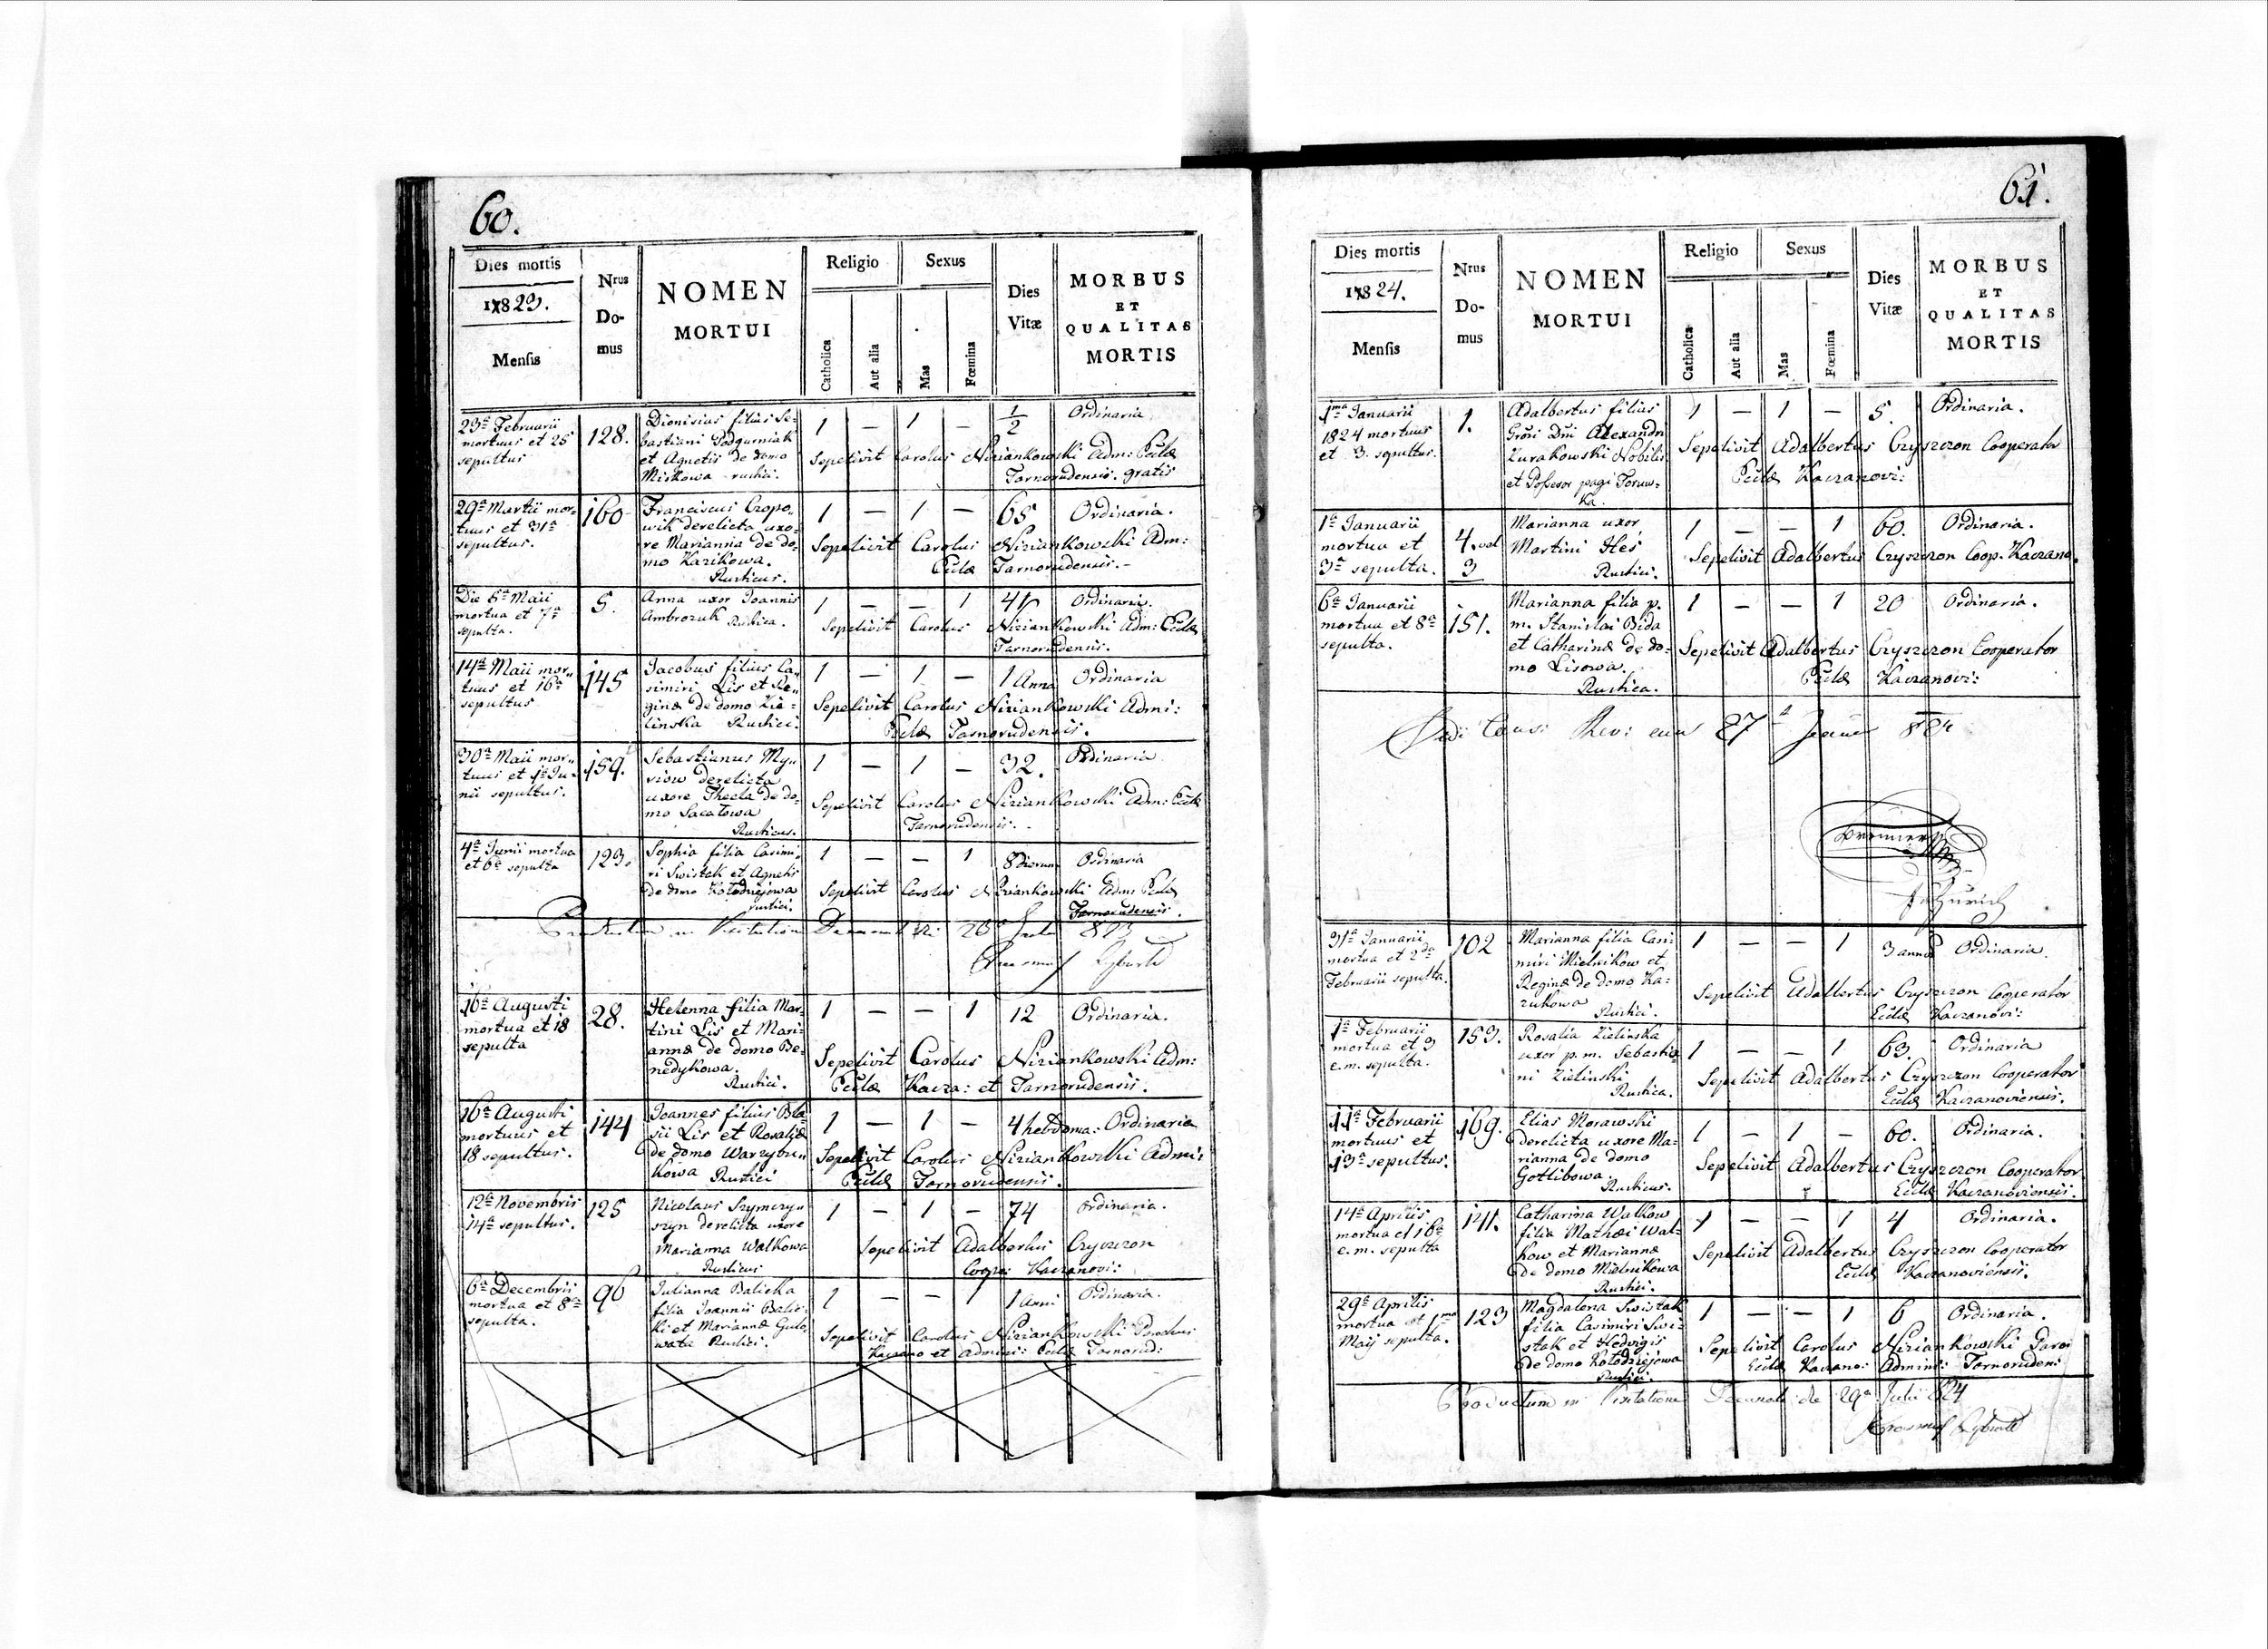 60.
Dies mortis
1823.
Mensis
Nrus Domus
NOMEN MORTUI
Religio
Catholica
Aut alia
Sexus
Mas
Fœmina
Dies Vitæ
MORBUS ET QUALITAS MORTIS
23a Februarii mortuus et 25 sepultus
128.
Dionisius filius Sebastiani Podgurniak et Agnetis de domo Miskowa rustici.
1 — 1 — 1/2 Ordinaria
Sepelivit Carolus Niziankowski Adm: Eccla
Tarnorudensis. gratis
29a Martii mortuus et 31a sepultus.
160
Franciscus Czopowik derelicta uxore Marianna de domo Kazikowa. Rusticus.
1 — 1 — 65 Ordinaria.
Sepelivit Carolus Niziankowski Adm:
Eccla Tarnorudensis.
Die 5a Maii mortua et 7a sepulta.
5.
Anna uxor Joannis Ambrozuk Rustica.
1 — — 1 41 Ordinaria.
Sepelivit Carolus Niziankowski Adm: Eccla
Tarnorudensis.
14a Maii mortuus et 16a sepultus
145
Jacobus filius Casimiri Lis et Reginæ de domo Zielinska Rustici
1 — 1 — 1 Anna Ordinaria
Sepelivit Carolus Niziankowski Admi:
Eccla Tarnorudensis.
30a Maii mortuus et 1a Junii sepultus.
159.
Sebastianus derelicta uxore Thecla de domo Sacatowa Rusticus.
1 — 1 — 32. Ordinaria
Sepelivit Carolus Niziankowski Adm: Eccla
Tarnorudensis.
4a Junii mortua et 6a sepulta
123.
Sophia filia Casimiri Swistak et Agnetis de domo Kołodziejowa rustici.
1 — — 1 8 dierum Ordinaria
Sepelivit Carolus Niziankowski Adm: Eccla
Tarnorudensis.
16a Augusti mortua et 18 sepulta
28.
Helenna filia Martini Lis et Mariannæ de domo Benedykowa. Rustici.
1 — — 1 12 Ordinaria.
Sepelivit Carolus Niziankowski Adm:
Eccla Kacza: et Tarnorudensis.
16a Augusti mortuus et 18 sepultus.
144
Joannes filius Blasii Lis et Rosaliæ de domo Warzybukowa Rustici
1 — 1 — 4 hebdoma: Ordinaria
Sepelivit Carolus Niziankowski Admi:
Eccla Tarnorudensis.
12a Novembris 14a sepultus.
125
Nicolaus Szymczyszyn derelicta uxore Marianna Walkowa Rusticus
1 — 1 — 74 Ordinaria.
Sepelivit Adalbertus Czyszczon
Coope: Kaczanovi:
6a Decembris mortua et 8a sepulta.
96
Julianna Balicka filia Joannis Balicki et Mariannæ Gulowata Rustici.
1 — — 1 1 Anni Ordinaria.
Sepelivit Carolus Niziankowski Parochus
Kaczano et Admini: Eccla Tarnorud:
61.
Dies mortis
1824.
Mensis
Nrus Domus
NOMEN MORTUI
Religio
Catholica
Aut alia
Sexus
Mas
Fœmina
Dies Vitæ
MORBUS ET QUALITAS MORTIS
1ma Januarii 1824 mortuus et 3. sepultus.
1.
Adalbertus filius Grosi Dni Alexandri Zurakowski Nobilis et Possesor pagi Toruwka.
1 — 1 — 5. Ordinaria.
Sepelivit Adalbertus Czyszczon Cooperator
Eccla Kaczanovi:
1a Januarii mortua et 3a sepulta.
4. vel 3
Marianna uxor Martini Hes Rustici.
1 — — 1 60. Ordinaria.
Sepelivit Adalbertus Czyszczon Coop. Kaczano.
6a Januarii mortua et 8a sepulta.
151.
Marianna filia p. m. Stanislai Bida et Catharinæ de domo Lisowa. Rustica.
1 — — 1 20 Ordinaria.
Sepelivit Adalbertus Czyszczon Cooperator
Eccla Kaczanovi:
31a Januarii mortua et 2da Februarii sepulta.
102
Marianna filia Casimiri Mielnikow et Reginæ de domo Kazukowa Rustici.
1 — — 1 3 anna Ordinaria.
Sepelivit Adalbertus Czyszczon Cooperator
Eccla Kaczanovi:
1a Februarii mortua et 3 e.m. sepulta.
153.
Rosalia Zielinska uxor p.m. Sebastiani Zielinski Rustica.
1 — — 1 63. Ordinaria
Sepelivit Adalbertus Czyszczon Cooperator
Eccla Kaczanoviensis.
11a Februarii mortuus et 13a sepultus.
169.
Elias Morawski derelicta uxore Marianna de domo Gotlibowa. Rusticus.
1 — 1 — 60. Ordinaria.
Sepelivit Adalbertus Czyszczon Cooperator
Eccla Kaczanoviensis.
14a Aprilis mortua et 16a e.m. sepulta
141.
Catharina Walkow filia Mathæi Walkow et Mariannæ de domo Mielnikowa Rustici.
1 — — 1 4 Ordinaria.
Sepelivit Adalbertus Czyszczon Cooperator
Eccla Kaczanoviensis.
29a Aprilis mortua et 1ma Maij sepulta.
123
Magdalena Swistak filia Casimiri Swistak et Hedvigis de domo Kołodziejowa Rustici.
1 — — 1 6 Ordinaria.
Sepelivit Carolus Niziankowski Paroi
Eccla Kaczano: Admini: Tarnoruden:
Productum in Visitatione Decanali die 29a Julii 824